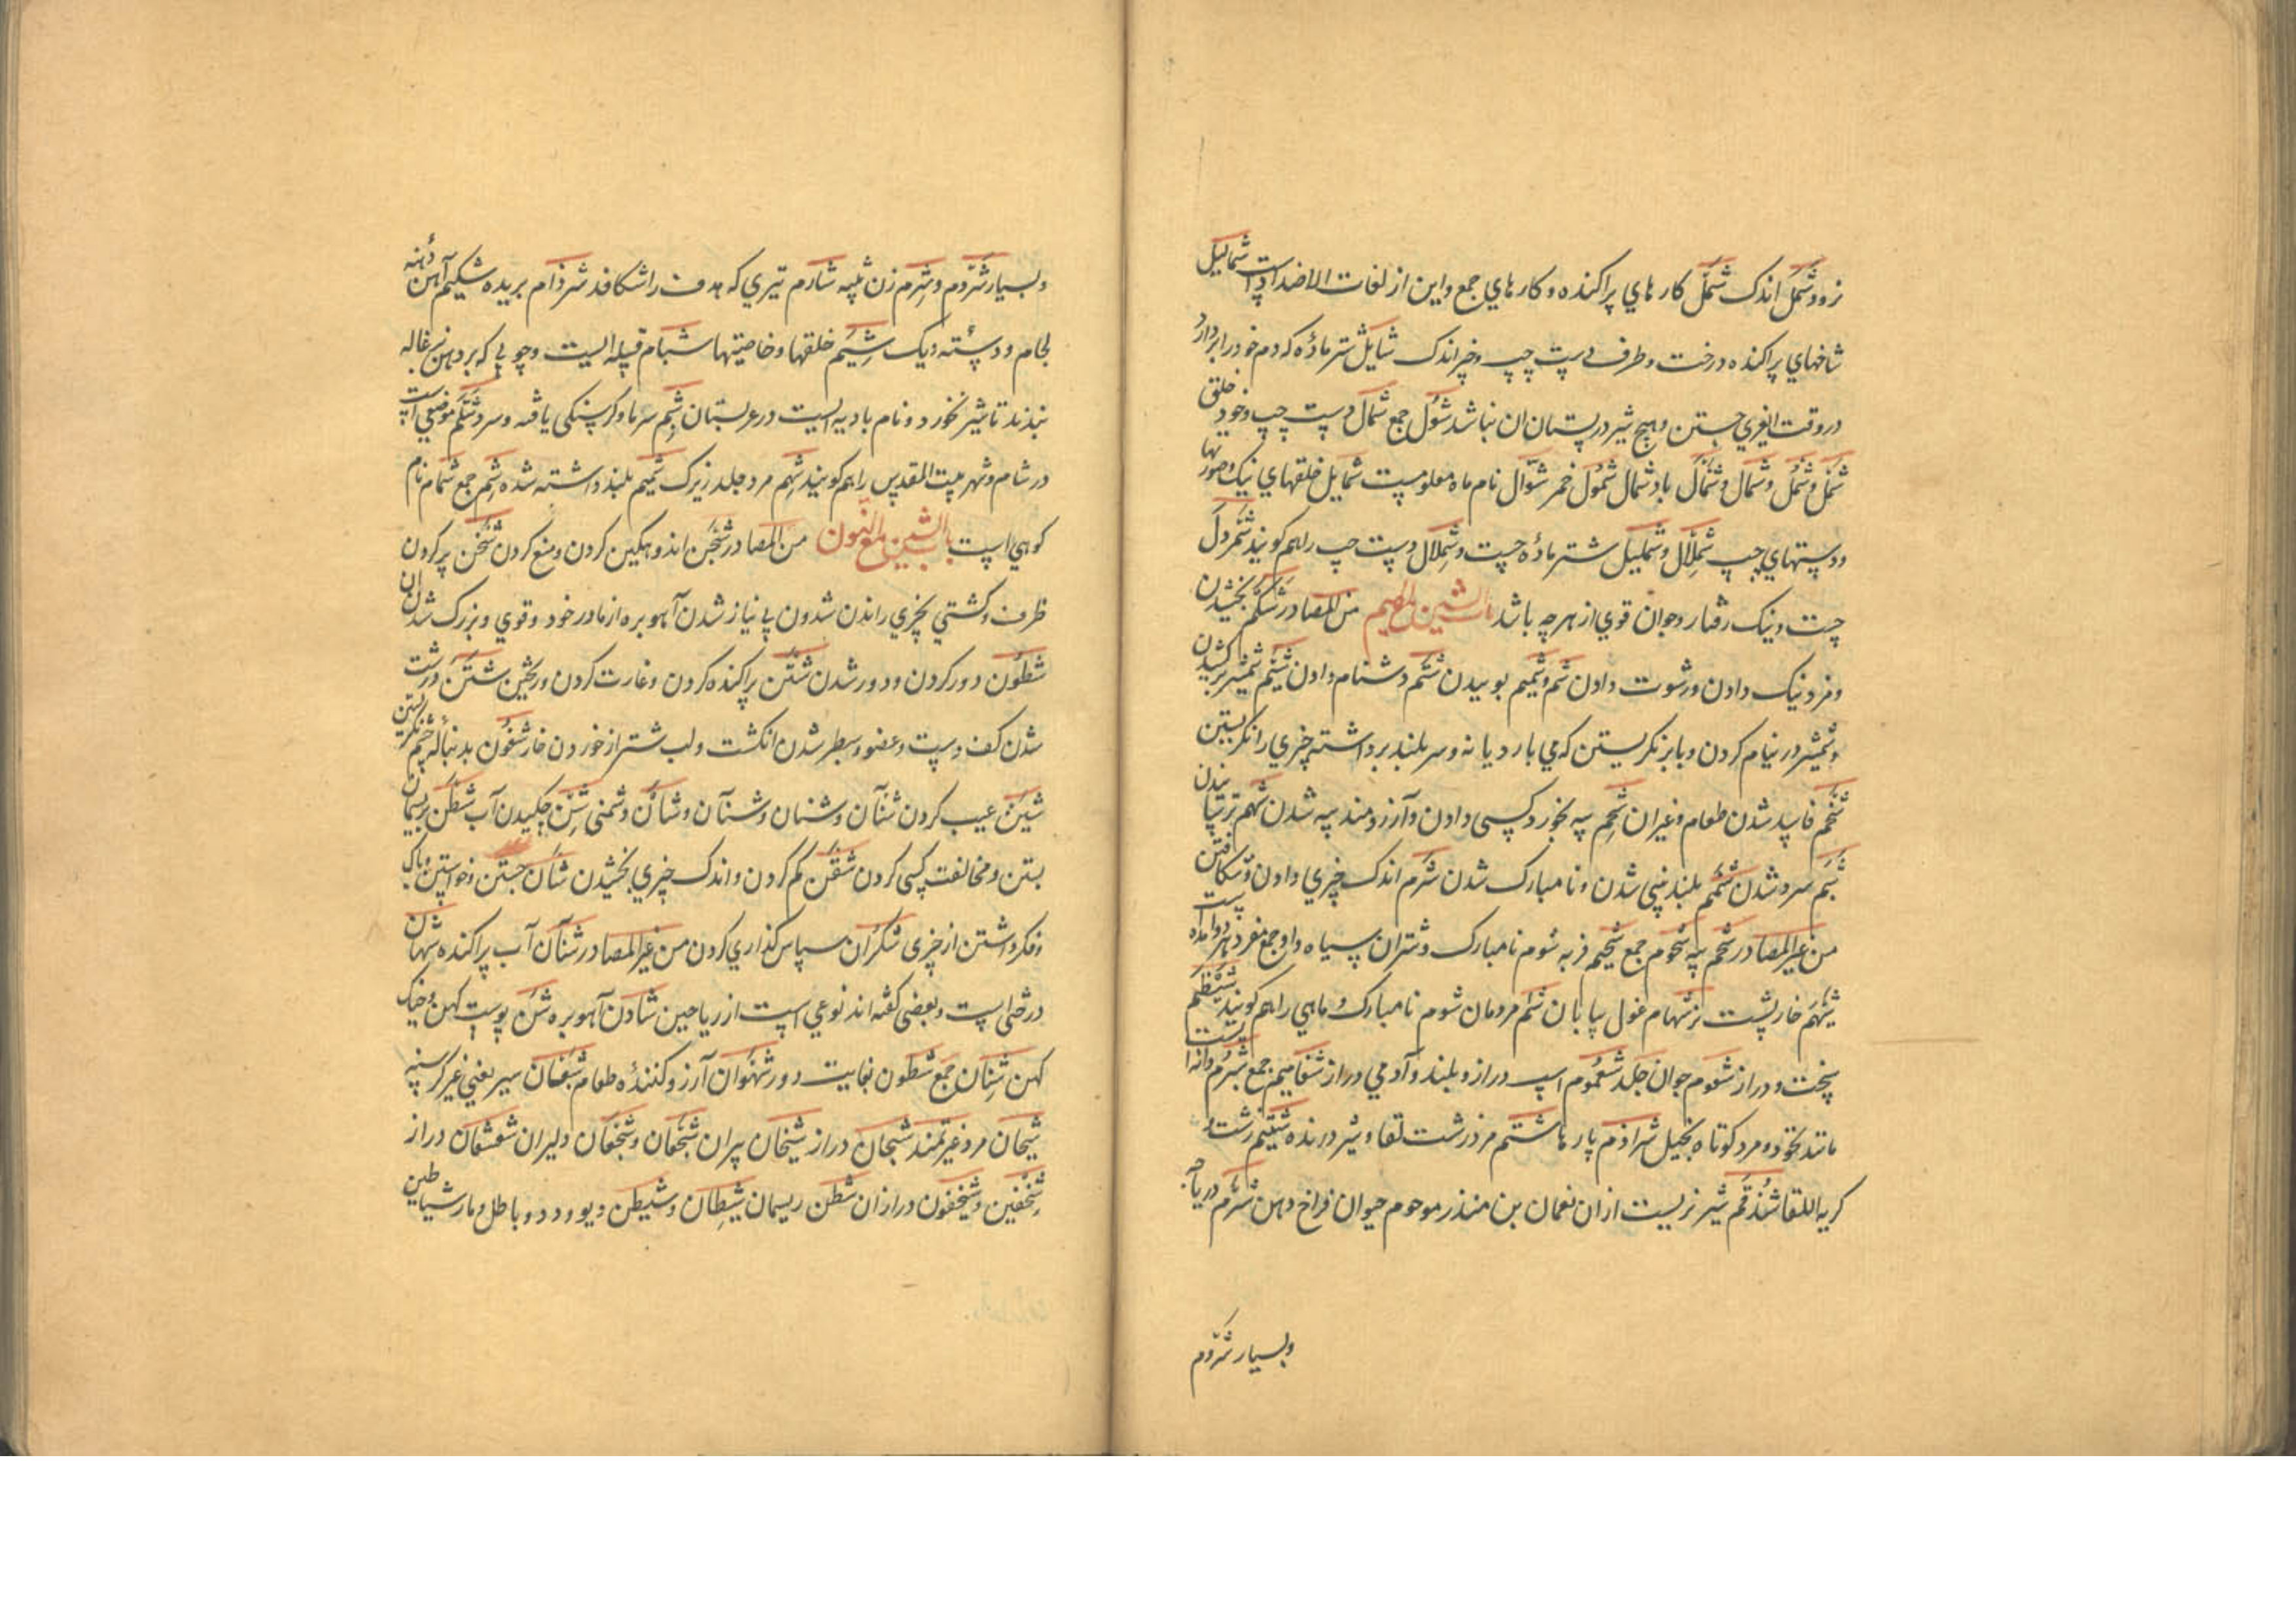 زود شَمَل اندک شَمل کارهای پراکنده و کارهای جمع و این از لغات الاضداد است شمالیل
شاخهای پراکنده درخت و طرف دست چپ و چیز اندک شایل شتر ماده که دم خود را بردارد
در وقت جستن و هیچ شیر در پستان ان نباشد شول جمع شمال دست چپ و خوی و خلق
شمل و شمل و شمال و شمأل باد شمال شمول خمر شوال نام ماه معلومست شمایل خلقهای نیک و صورتها
و دستهای چپ شملال و شملیل شتر ماده چست و شملال دست چپ را هم کویند شمردل
چست و نیک رفتار و جوان قوی از هر چه باشد باب الشین مع المیم من المصادر شکم بخشیدن
و مزد نیک دادن و رشوت دادن شم و شمیم بوییدن شتم دشنام دادن شیم شمشیر برکشیدن
و شمشیر در نیام کردن و با برق نکریستن که می بارد یا نه و سر بلند برداشته چیزی را نکریستن
شخم فاسد شدن طعام و غیر ان شحم پیه بخورد کسی دادن و آرزومند پیه شدن شهم ترسانیدن
شبم سرد شدن شمم بلند بینی شدن و نامبارک شدن شرم اندک چیزی دادن و شکافتن
من غیر المصادر شحم پیه شحوم جمع شحیم فربه شوم نامبارک و شتران سیاه
شیهم خارپشت نر شهام غول بیابان شئم مردمان شوم نامبارک و ماهی را هم کویند شیظم
سخت و دراز شغموم جوان جلد شغموم اسپ دراز و بلند و آدمی دراز شغامیم جمع شبرم دانه است
مانند نخود و مرد کوتاه بخیل شراذم پارها شتم مرد زشت لقا و شیر درنده شتیم زشت و
کریه اللقا شدقم شیر نریست از ان نعمان بن منذر حیوان فراخ دهن شرم دریاچه
وبسیار شروم
وبسیار شروم و شرم زن شارم تیری که هدف را شکافد شرذام بریده شکیم آهن دهنه
لجام و دسته دیک شیم خلقها و خاصیتها شبام قبیله ایست و چوبی که بر دهن بزغاله
بندند تا شیر نخورد و نام بادیه ایست در عربستان شبم سرما و کرسنکی یافته و سرد شلم موضعی است
در شام و شهر بیت المقدس را هم کویند شهم مرد جلد زیرک شمیم بلند داشته شده شم جمع شمام نام
کوهی است باب الشین مع النون من المصادر شجن اندوهکین کردن و منع کردن شحن پر کردن
ظرف و کشتی بچیزی راندن شدون بی نیاز شدن آهو بره از مادر خود و قوی و بزرک شدن ان
شطون دور کردن و دور شدن شن پراکنده کردن و غارت کردن و ریختن شثن درشت
شدن کف دست و عضو و سطبر شدن انکشت و لب شتر از خوردن خار شفون بدنباله چشم نکریستن
شین عیب کردن شنآن و شنان و شنآن و شنان دشمنی شن چکیدن آب شطن بریسمان
بستن و مخالفت کسی کردن شقن کم کردن و اندک چیزی بخشیدن شان جستن و خواستن وباک
و فکر داشتن از چیزی شکران سپاس کذاری کردن من غیر المصادر شنان آب پراکنده شهان
درختی است و بعضی کفته اند نوعی است از ریاحین شادن آهو بره شن پوست کهن و خیک
کهن شنان جمع شطون بغایت دور شهوان آرزو کننده طعام شبعان سیر یعنی غیر کرسنه
شیحان مرد غیرتمند شجان دراز شیخان پیران شجعان و شجعان دلیران شعشعان دراز
شخفین و شیخفون درازان شطن ریسمان شیطان و شیطن دیو و دد و باطل و مار شیاطین